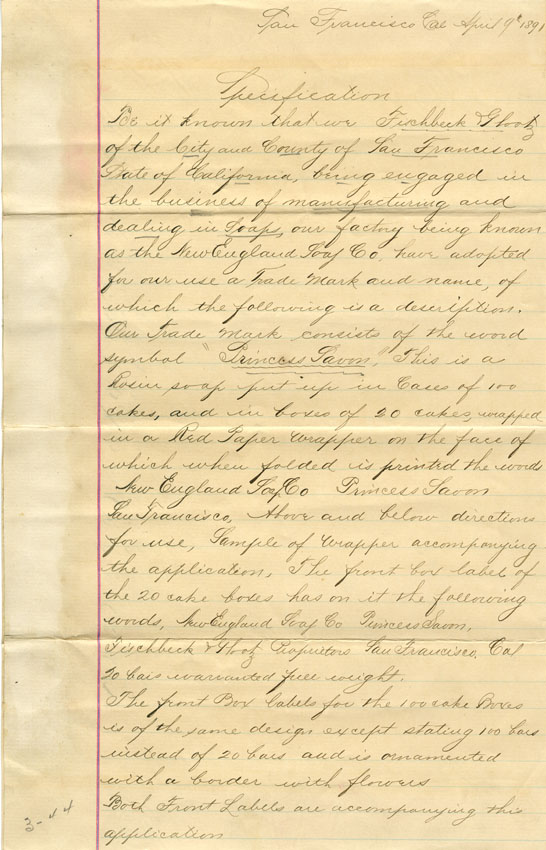 San Francisco Cal April 9th 1891
Specification
Be it known that we Fischbeck & Glootz
of the City and County of San Francisco
State of California, being engaged in
the business of manufacturing and
dealing in Soaps, our factory being known
as the New England Soap Co, have adopted
for our use a Trade Mark and name, of
which the following is a description.
Our Trade Mark consists of the word
symbol "Princess Savon," This is a
Rosin soap put up in Cases of 100
cakes, and in boxes of 20 cakes, wrapped
in a Red Paper Wrapper on the face of
which when folded is printed the words
New England Soap Co Princess Savon
San Francisco, Above and below directions
for use, Sample of Wrapper accompanying
the application, The front box label of
the 20 cake boxes has on it the following
words, New England Soap Co Princess Savon,
Fischbeck & Glootz Proprietors San Francisco, Cal
20 bars warranted full weight.
The front Box labels for the 100 cake Boxes
is of the same design except stating 100 bars
instead of 20 bars and is ornamented
with a border with flowers
Both Front Labels are accompanying this
application
3-44